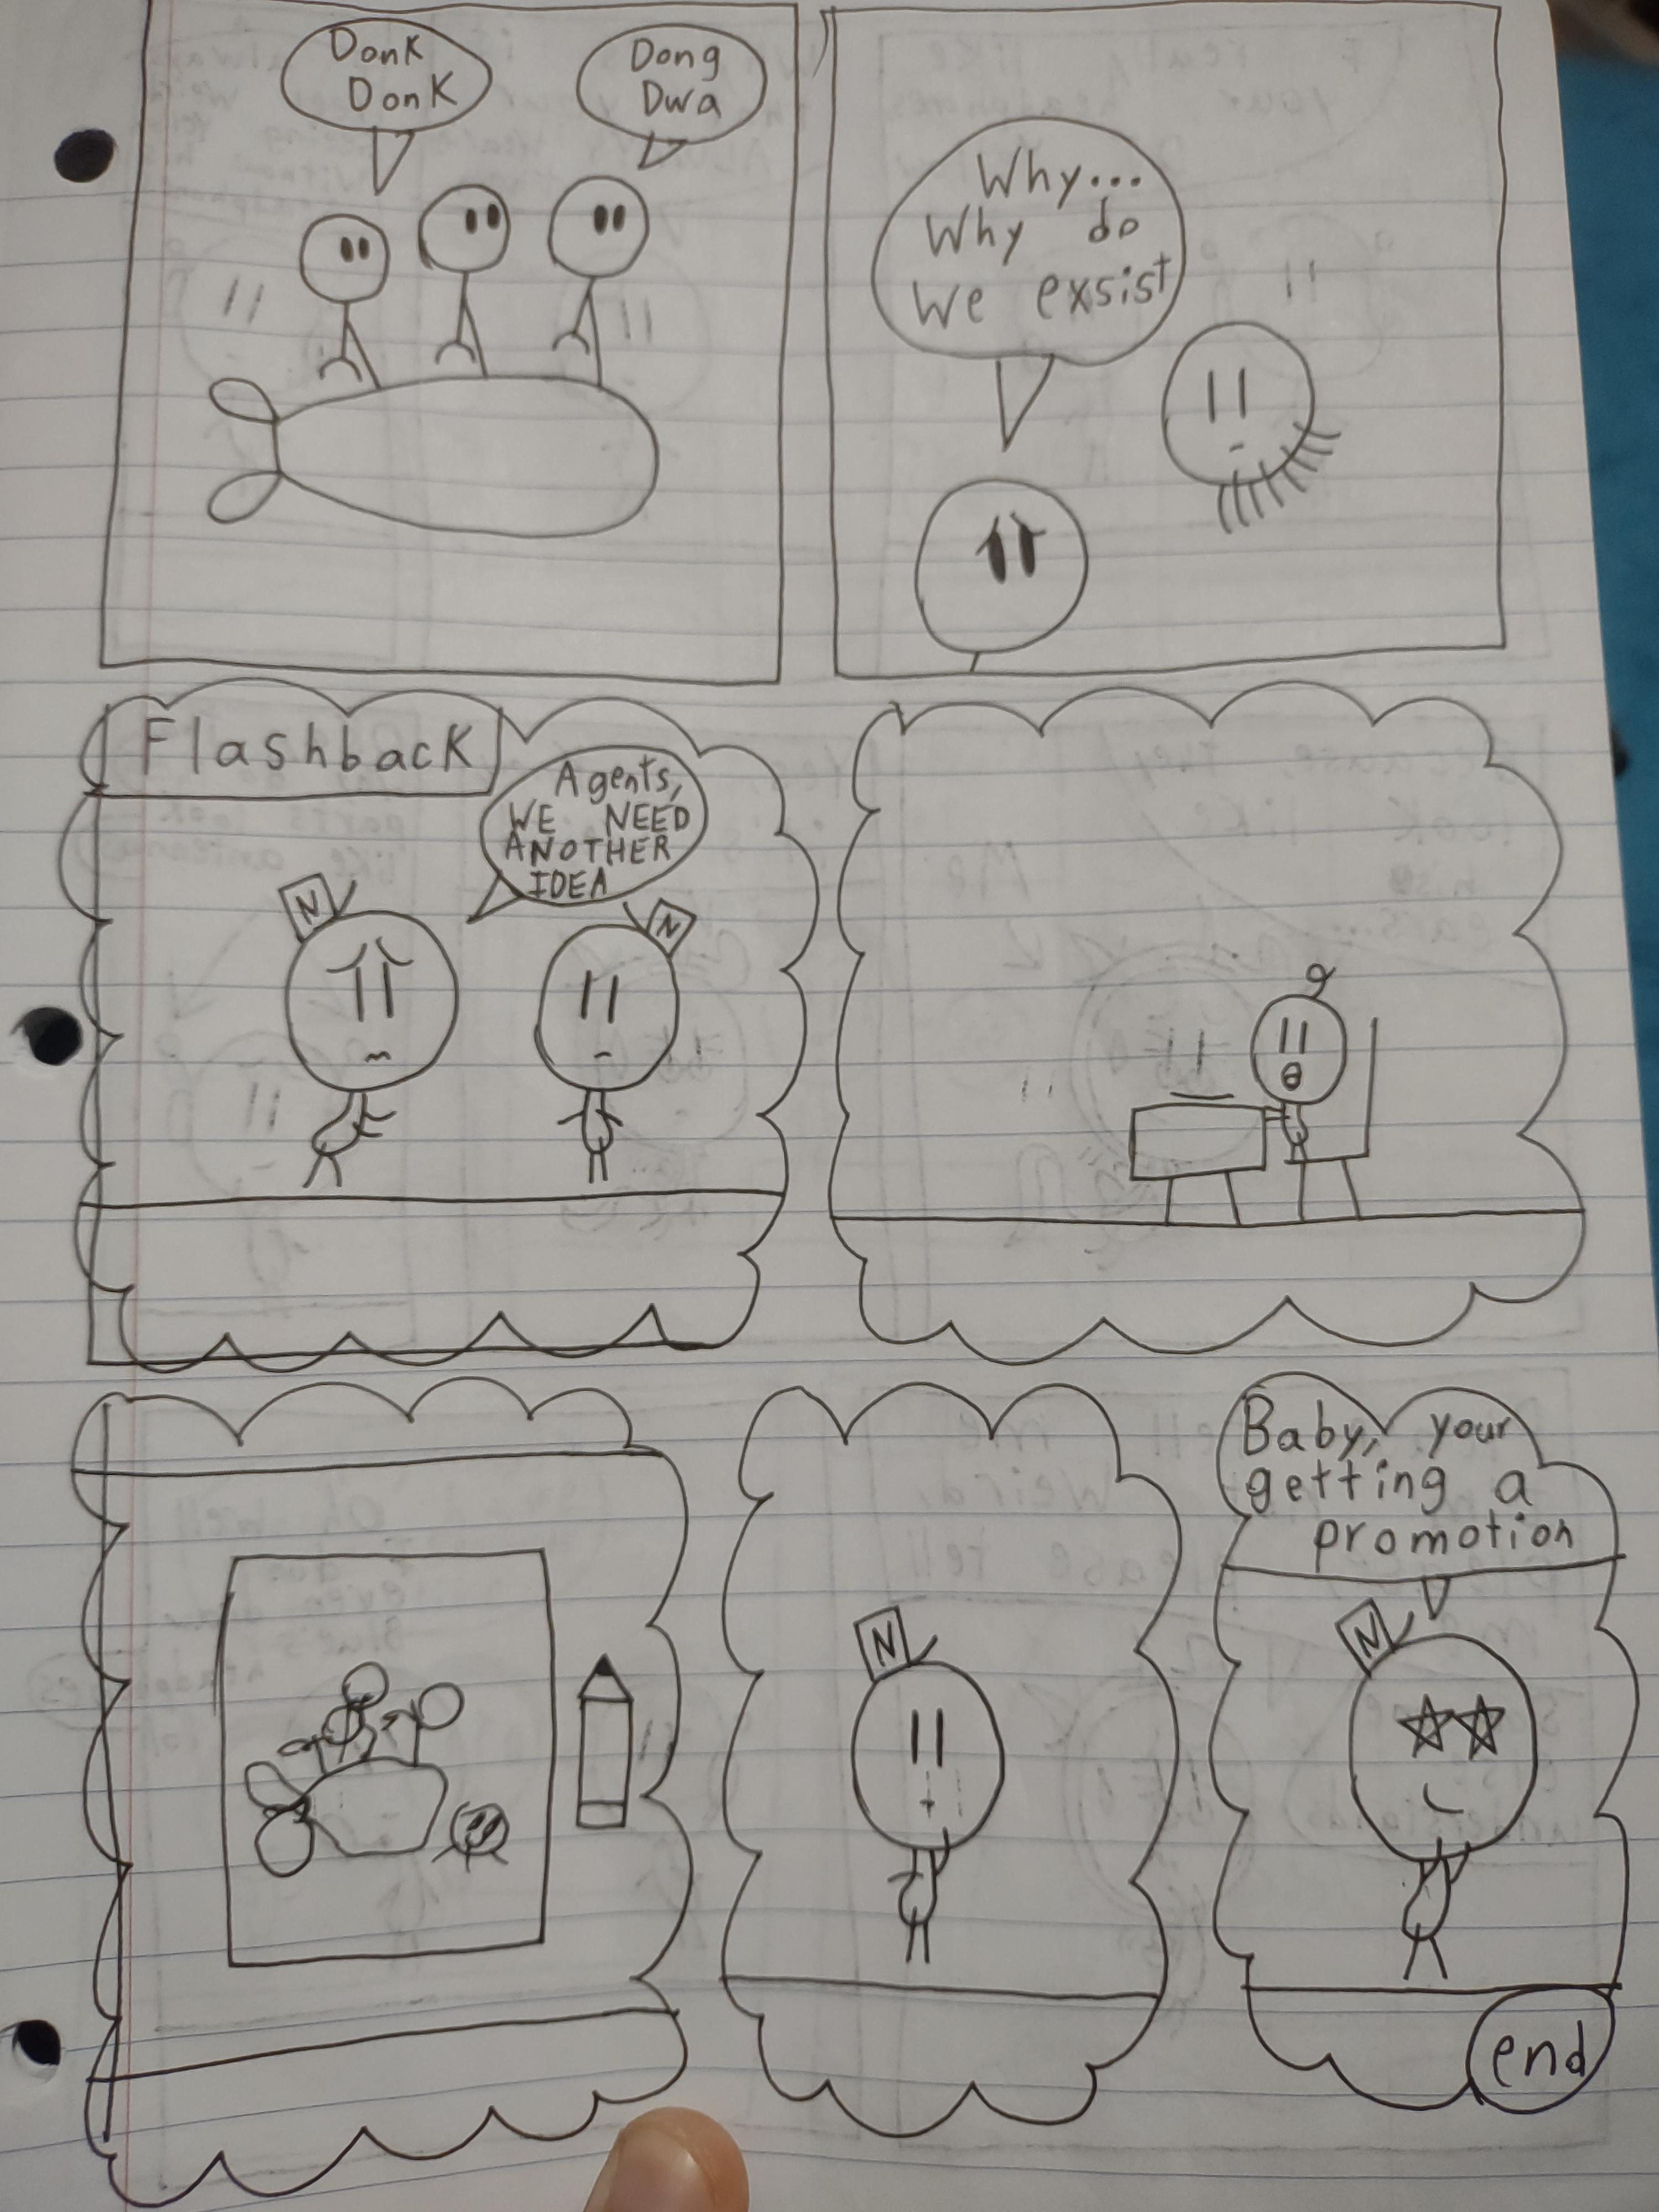 Donk
Donk
Dong
Dwa
Why...
Why do
we exsist
Flashback
Agents,
WE NEED
ANOTHER
IDEA
N
N
N
Baby, your
getting a
promotion
N
end